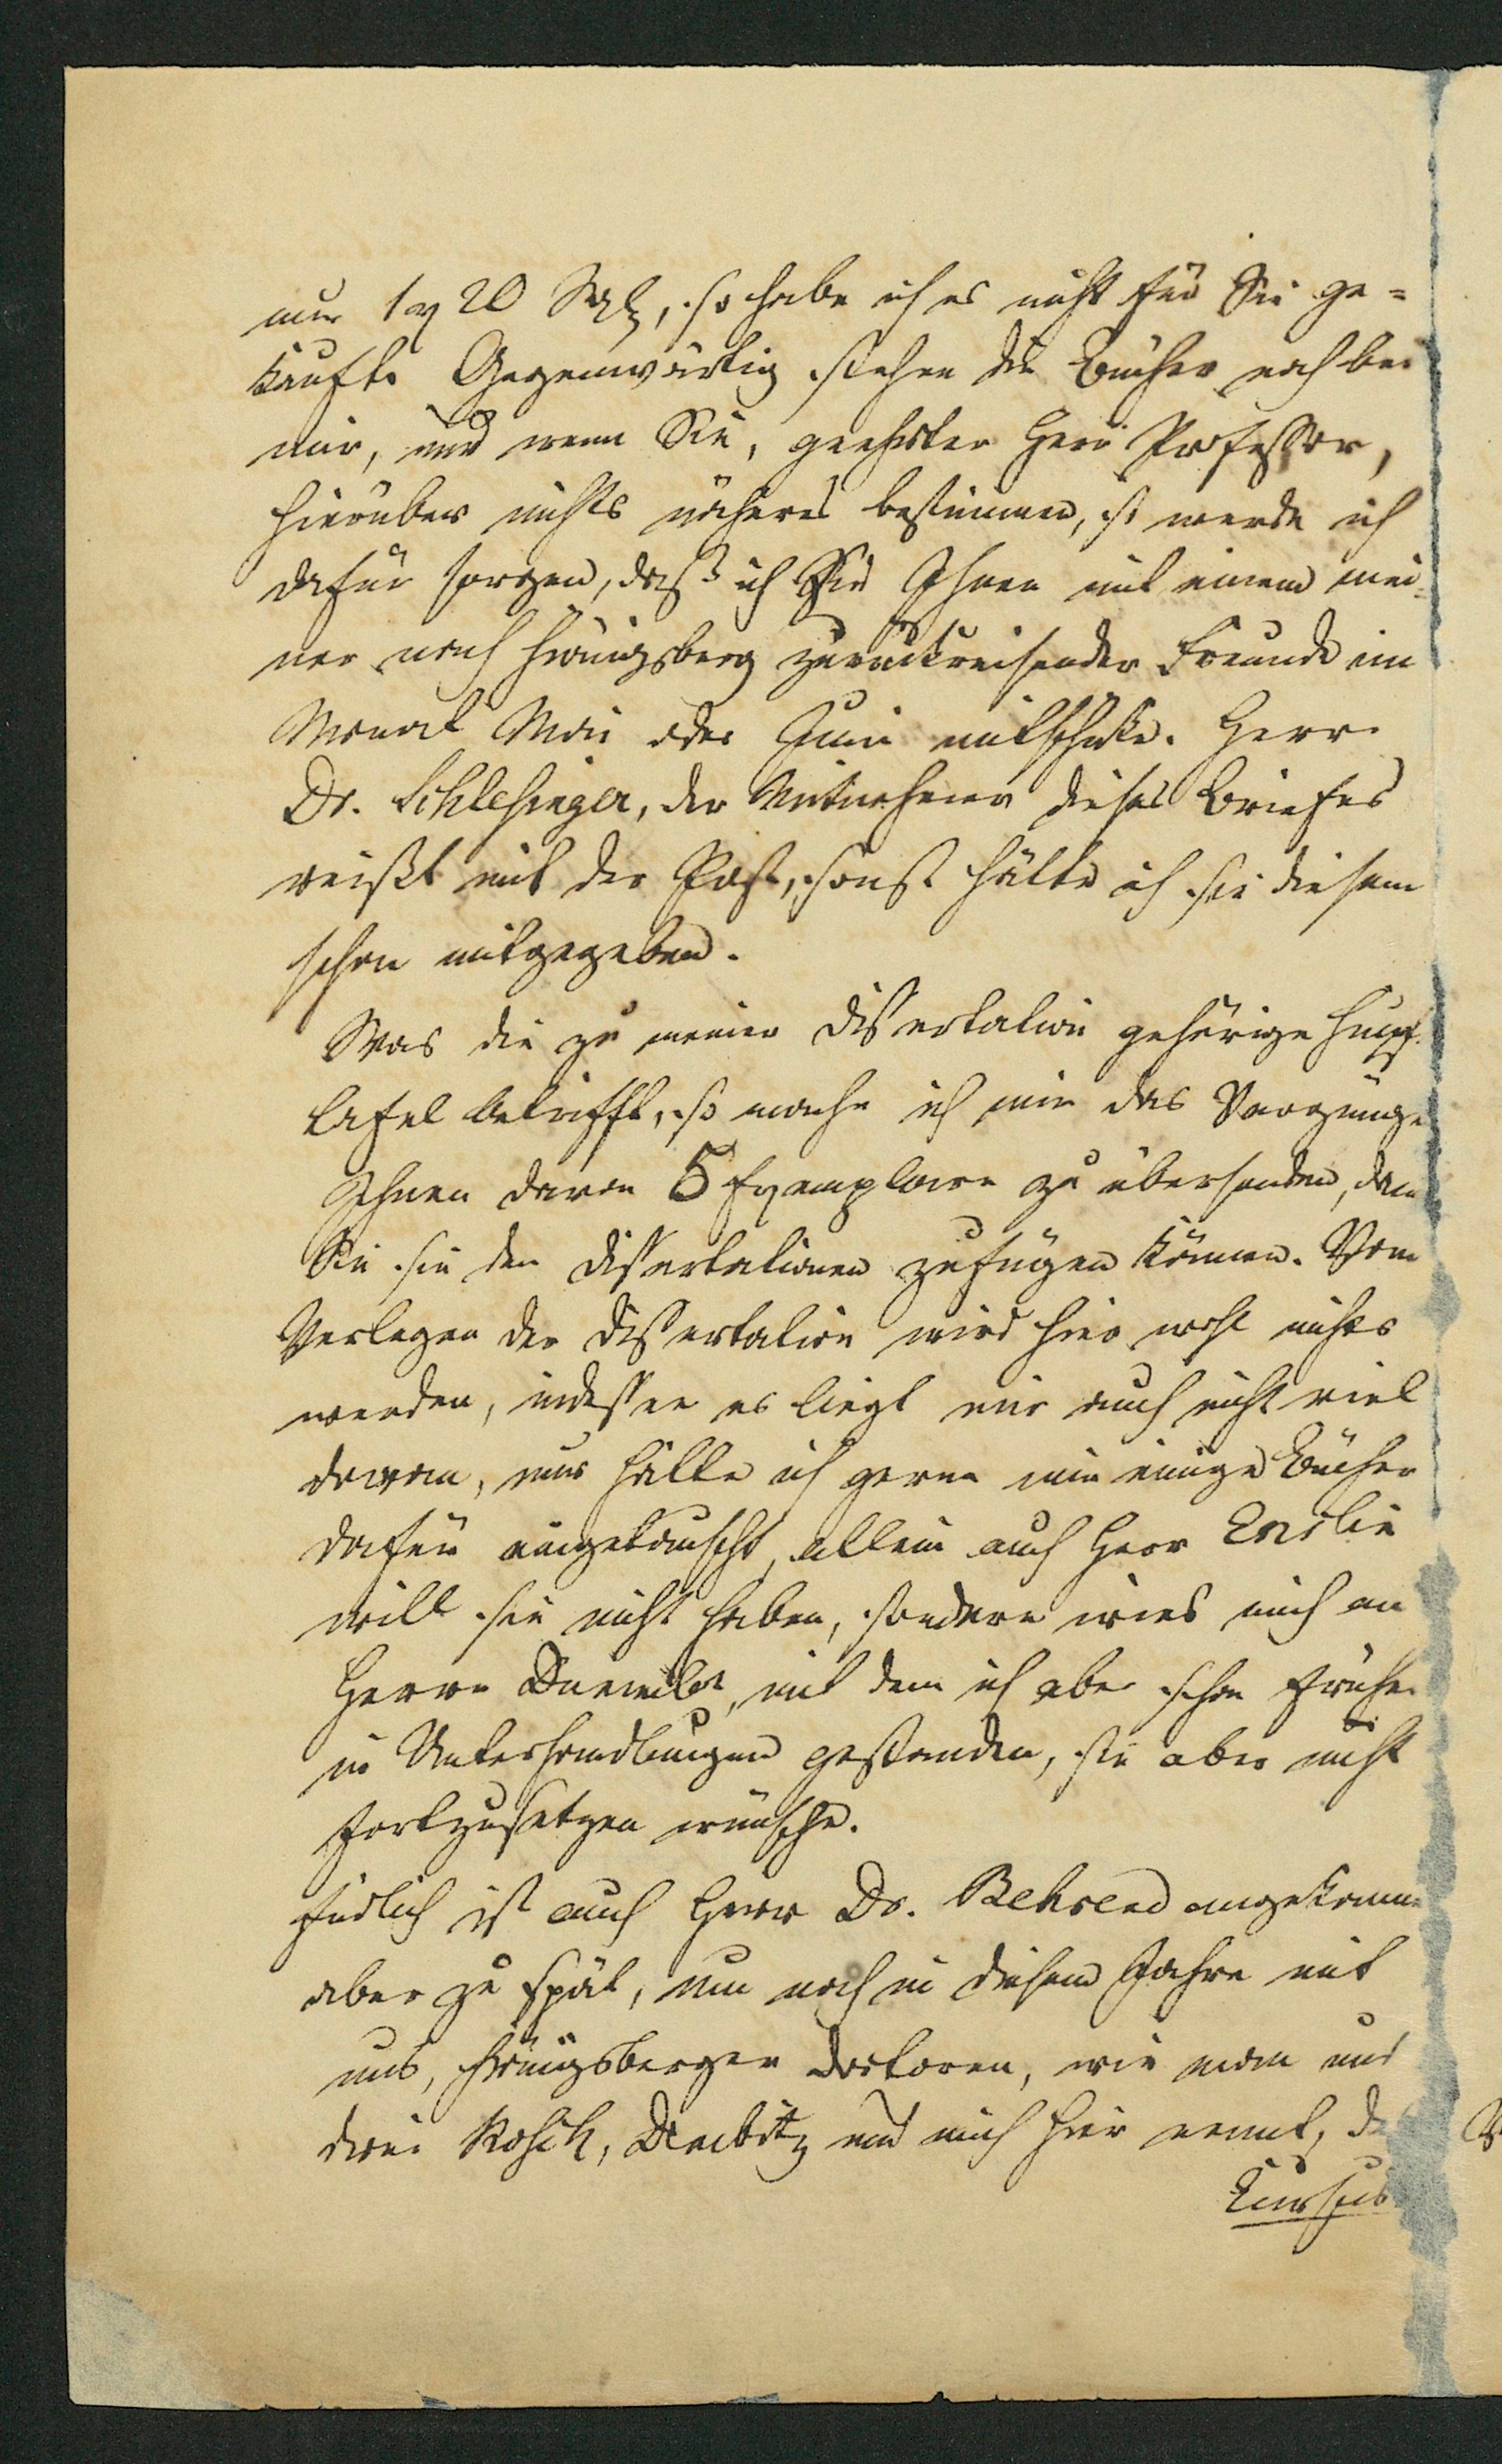 nur 1 rth 20 Sgl, so habe ich es nicht für Sie ge=
kauft. Gegenwärtig stehen die Bücher noch bei
mir, und wenn Sie, geehrter Herr Professor,
hierüber nichts näheres bestimmen, so werde ich
dafür sorgen, daß ich Sie Ihnen mit einem mei=
ner nach Königsberg zurückreisender Freunde im
Monat Mai oder Juni mitschicke. Herr
Dr. Schlesinger, der Mitnehmer dieses Briefes
reißt mit der Post, sonst hätte ich sie diesem
schon mitgegeben.
Was die zu meiner Dissertation gehörige Kupf
tafel betrifft, so mache ich mir das Vergnüge
Ihnen davon 5 Exemplare zu übersenden, dam
Sie sie den Dissertationen zufügen können. Vom
Verlegen der Dissertation wird hier wohl nichts
werden, indessen es liegt mir auch nicht viel
daran, nur hätte ich gerne mir einige Bücher
dafür eingetauscht, allein auch Herr Enslin
will sie nicht haben, sondern wies mich an
Herrn Duemler, mit dem ich aber schon früher
in Unterhandlungen gestanden, sie aber nicht
fortzusetzen wünsche.
Endlich ist auch Herr Dr. Behrend angekomm=
aber zu spät, um noch in diesem Jahre mit
uns, Königsberger Doktoren, wie man uns
drei Kosch, Dembitz und mich hier nennt, de
Cursus